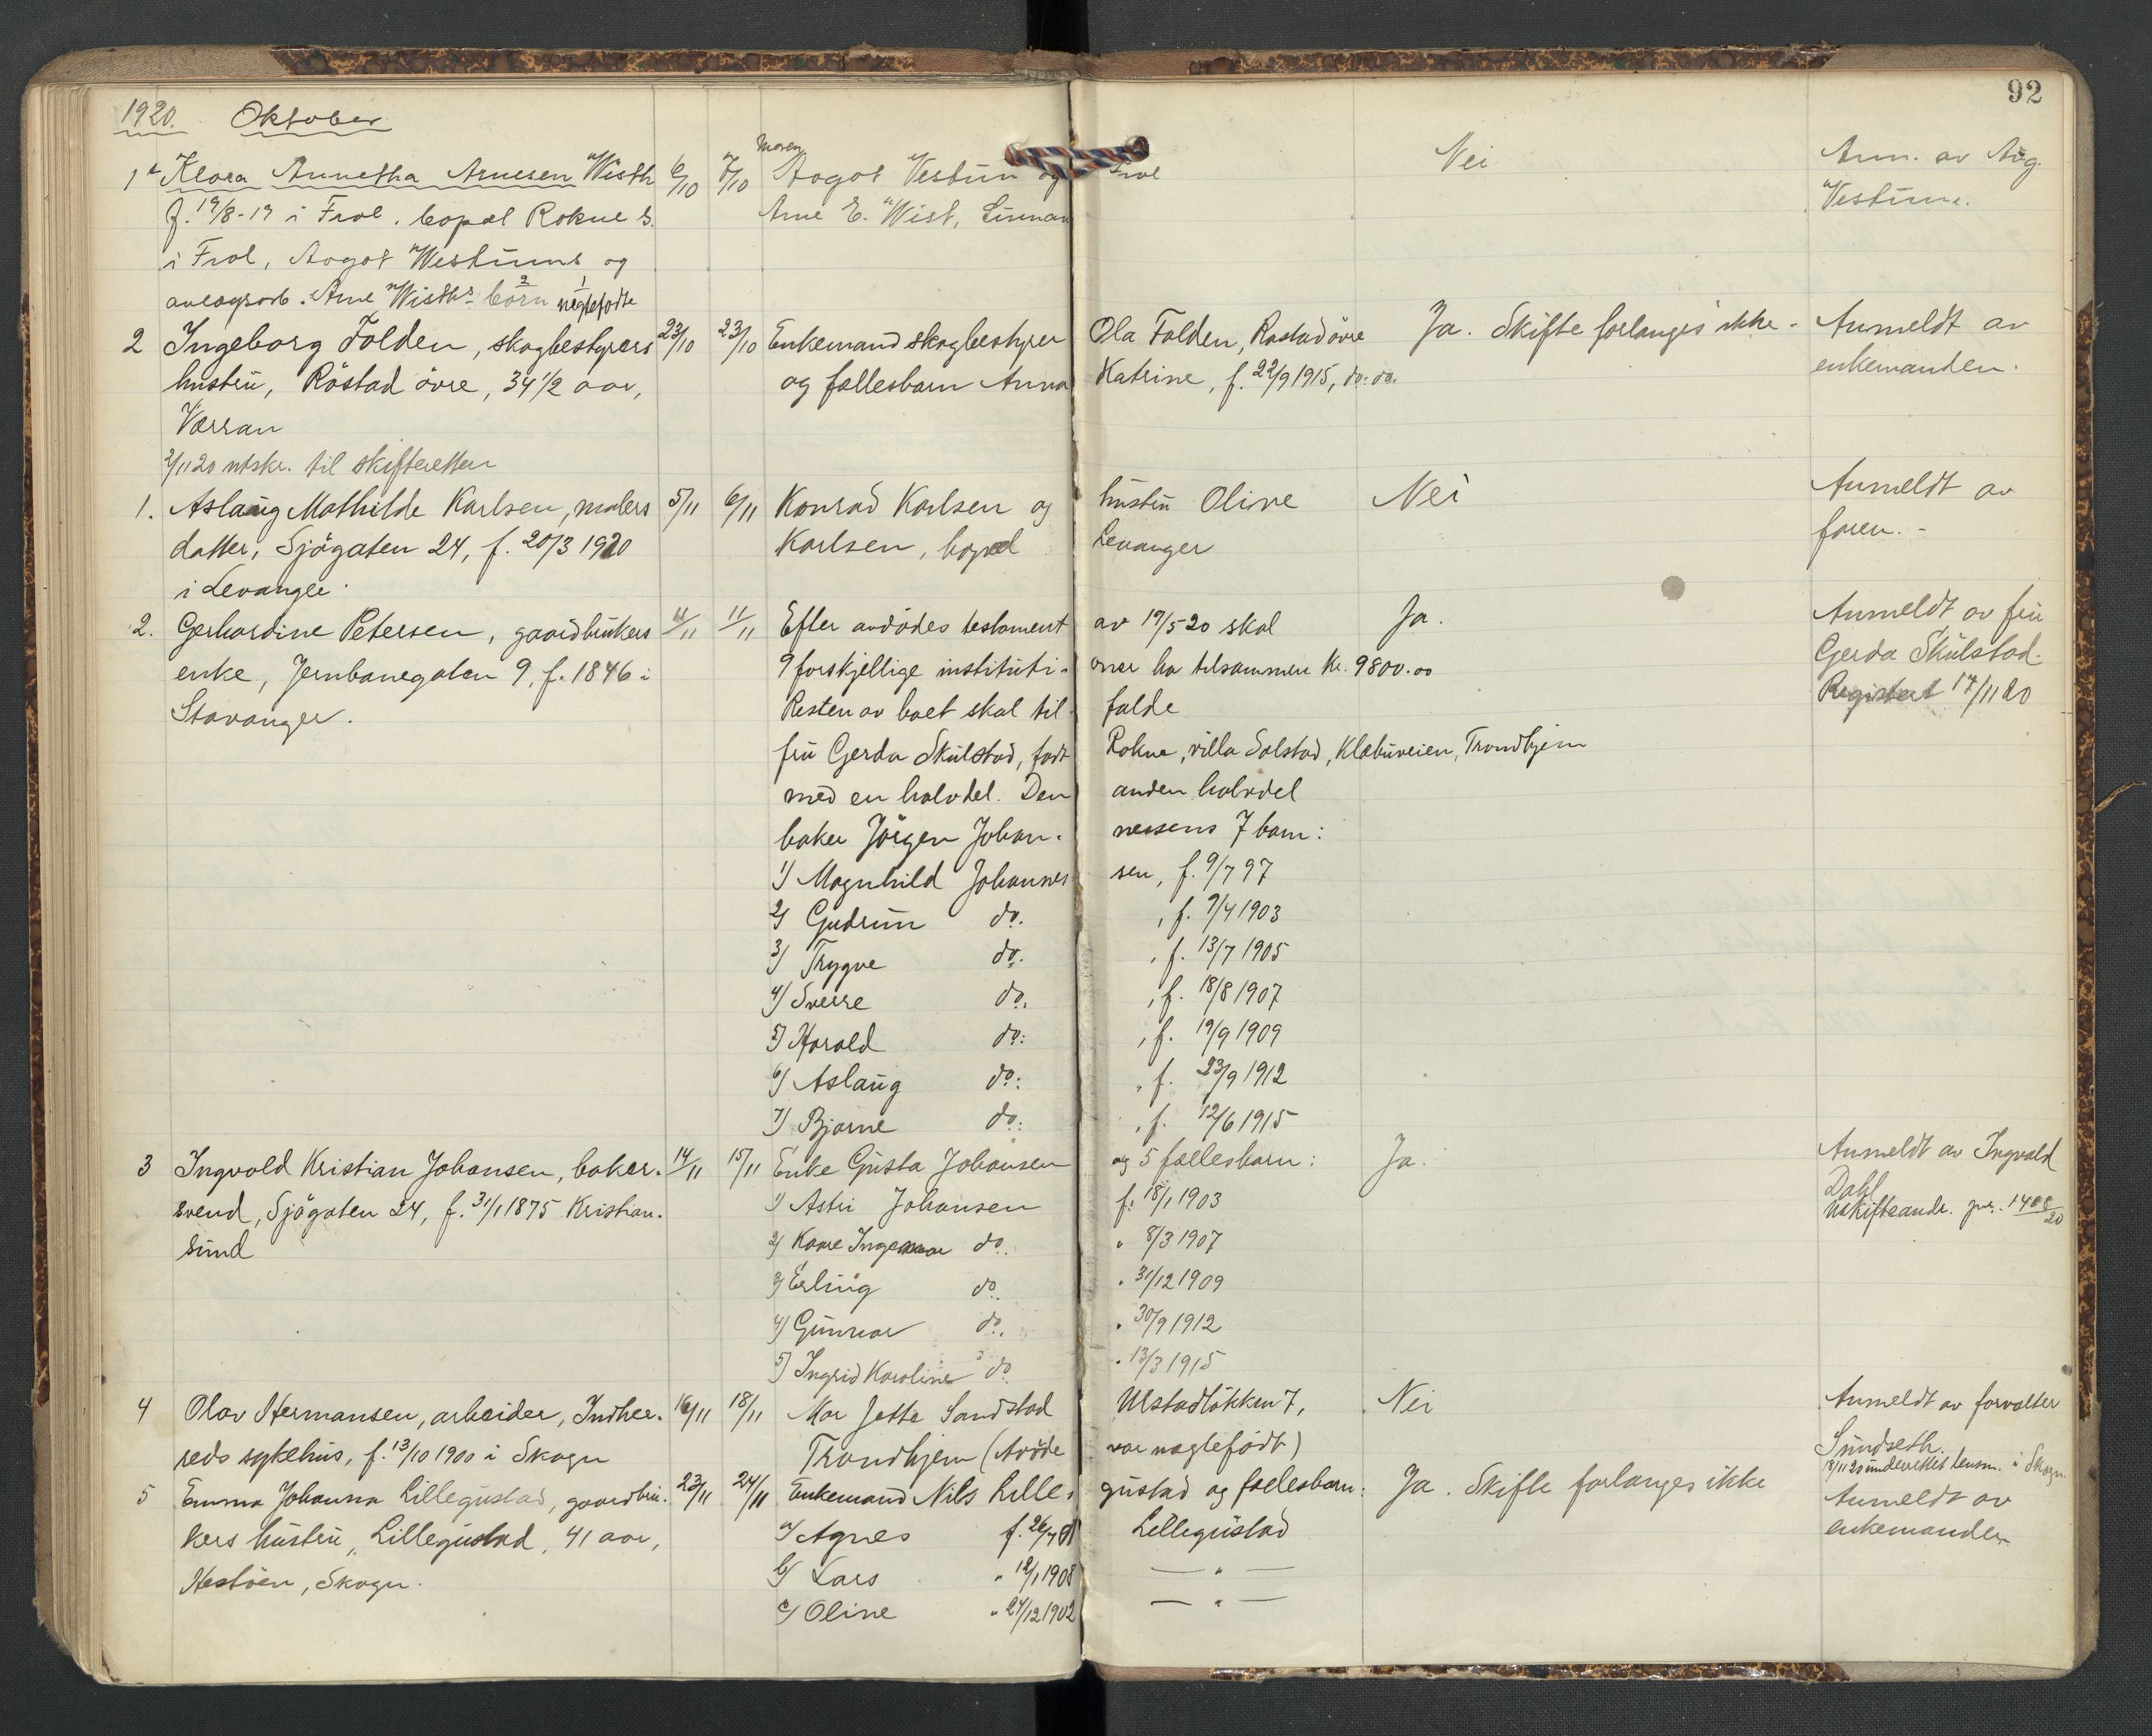 92
1920. Oktober
1 Klara Annetha Arnesen Wisth 6/10 7/10 Moren Aagot Vestum og Frol Nei Anm. av Aag.
f. 19/8-19 i Frol. bopæl Rokne s. Arne E. Wist, Vestum.
i Frol, Aagot Westums og
anlægsarb. Arne Wisths barn
2 Ingeborg Folden, skogbestyrers 23/10 23/10 Enkemand skogbestyrer Ola Folden, Røstad övre Ja. Skifte forlanges ikke - Anmeldt av
hustru, Röstad övre, 34 1/2 aar, og fællesbarn Anna Katrine, f. 22/9 1915, do. do. enkemanden.
Værran
2/11 20 utskr. til skifteretten
1. Aslaug Mathilde Karlsen, malers 5/11 6/11 Konrad Karlsen og hustru Oline Nei Anmeldt av
datter, Sjögaten 24, f. 20/3 1920 Karlsen, bopæl Levanger faren. -
i Levanger.
2. Gerhardine Petersen, gaardbrukers 11/11 11/11 Efter avdödes testament av 19/5 20 skal Ja. Anmeldt av fru
enke, Jernbanegaten 9, f. 1846 i 9 forskjellige instituti- oner ha tilsammen kr. 9800.00 Gerda Skulstad.
Stavanger. Resten av boet skal til- falde Registert 17/11 20
fru Gerda Skulstad, født Rokne, villa Solstad, Klæbuveien, Trondhjem
med en halvdel. Den anden halvdel
baker Jörgen Johan- nessens 7 barn:
1) Magnhild Johannes sen, f. 9/7 97
2) Gudrun do. , f. 9/4 1903
3) Trygve do. , f. 13/7 1905
4) Sverre do. , f. 18/8 1907
5) Harald do: , f. 19/9 1909
6) Aslaug do: , f. 23/9 1912
7) Bjarne do: , f. 12/6 1915
3 Ingvald Kristian Johansen, baker- 14/11 15/11 Enke Gusta Johansen og 5 fællesbarn: Ja. Anmeldt av Ingvald
svend, Sjögaten 24, f. 31/1 1875 Kristian- 1) Astri Johansen f. 18/1 1903 Dahl
sund 2) Kaare do. " 8/3 1907 Uskifteandr. 1408/20
3) Erling do. " 31/12 1909
4) Gunnar do. " 30/9 1912
5) Ingrid Karoline do " 13/3 1915
4 Olav Hermansen, arbeider, Indher- 16/11 18/11 Mor Jette Sandstad Ulstadlökken 7, Nei Anmeldt av forvalter
reds sykehus, f. 13/10 1900 i Skogn Trondhjem (Avöde var uægtefödt) Sundseth.
18/11 20 underrettet lensm. i Skogn
5 Emma Johanna Lillegustad, gaardbru- 23/11 24/11 Enkemand Nils Lille- gustad og fællesbarn: Ja. Skifte forlanges ikke Anmeldt av
kers hustru, Lillegustad, 41 aar, a) Agnes f. 26/7 01 Lillegustad enkemanden
Skogn. b) Lars " 12/1 1908 — " —
c) Oline " 27/12 1902 — " —